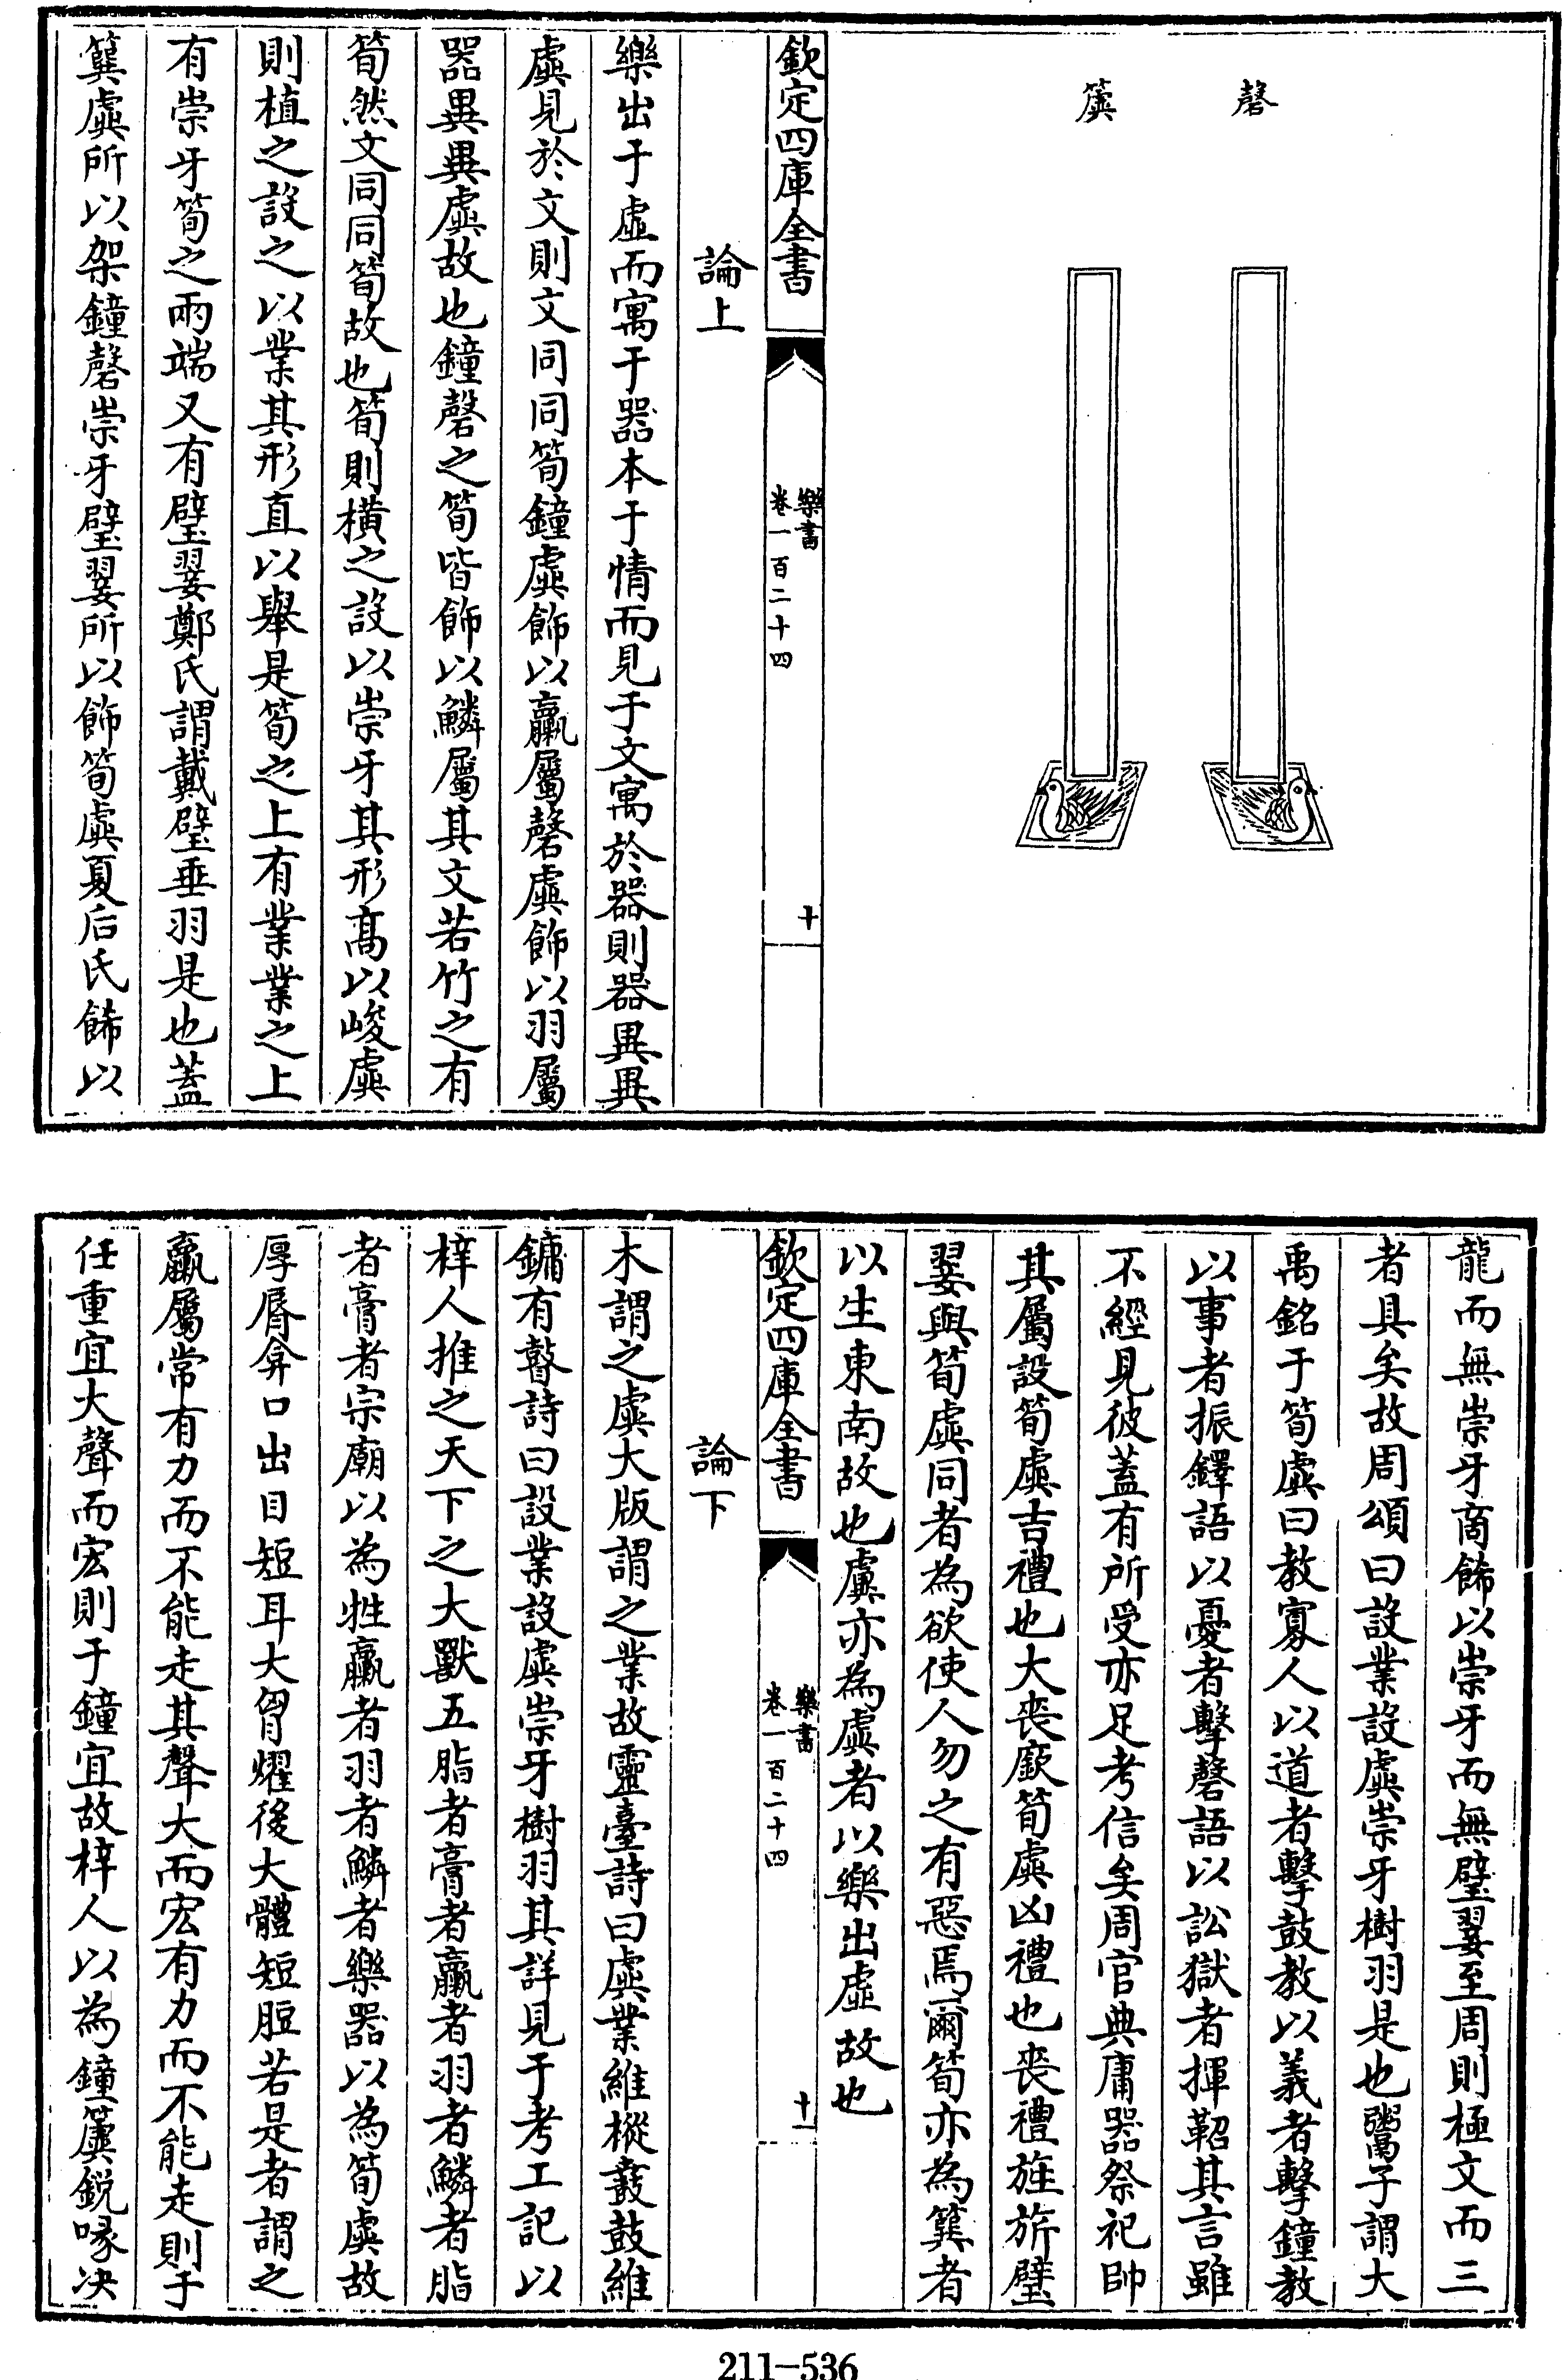 磬
簴
欽定四庫全書
樂書
卷一百二十四
十
論上
樂出于虛而寓于器本于情而見于文寓於器則器異異
虡見於文則文同同筍鐘虡飾以臝屬磬虡飾以羽屬
器異異虡故也鐘磬之筍皆飾以鱗屬其文若竹之有
筍然文同同筍故也筍則橫之設以崇牙其形髙以峻虡
則植之設之以業其形直以舉是筍之上有業業之上
有崇牙筍之兩端又有璧翣鄭氏謂戴璧垂羽是也蓋
簨虡所以架鐘磬崇牙璧翣所以飾筍虡夏后氏飾以
龍而無崇牙商飾以崇牙而無璧翣至周則極文而三
者具矣故周頌曰設業設虡崇牙樹羽是也鬻子謂大
禹銘于筍虡曰教寡人以道者擊鼓教以義者擊鐘教
以事者振鐸語以憂者擊磬語以訟獄者揮鞀其言雖
不經見彼蓋有所受亦足考信矣周官典庸器祭祀帥
其屬設筍虡吉禮也大喪廞筍虡凶禮也喪禮旌旂璧
翣與筍虡同者為欲使人勿之有惡焉爾筍亦為簨者
以生東南故也虡亦為虛者以樂出虛故也
欽定四庫全書
樂書
卷一百二十四
十一
論下
木謂之虡大版謂之業故靈臺詩曰虡業維樅鼖鼓維
鏞有瞽詩曰設業設虡崇牙樹羽其詳見于考工記以
梓人推之天下之大獸五脂者膏者臝者羽者鱗者脂
者膏者宗廟以為牲臝者羽者鱗者樂器以為筍虡故
厚脣弇口出目短耳大胷燿後大體短脰若是者謂之
臝屬常有力而不能走其聲大而宏有力而不能走則于
任重宜大聲而宏則于鐘宜故梓人以為鐘簴鋭喙决
211—536